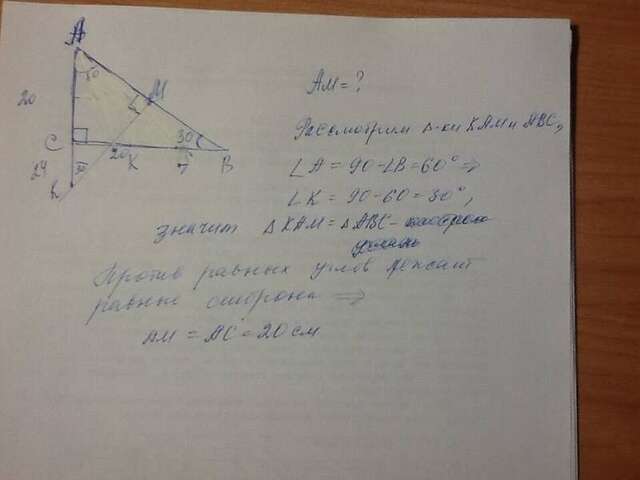 A
60
20
M
C
30
24
20
K
7
B
30
AM = ?
Рассмотрим Δ-ки KAM и ABC,
∠A = 90 - ∠B = 60° ⇒
∠K = 90 - 60 = 30°,
значит ΔKAM = ΔABC -
Против равных углов лежат
равные стороны ⇒
AM = AC = 20 см